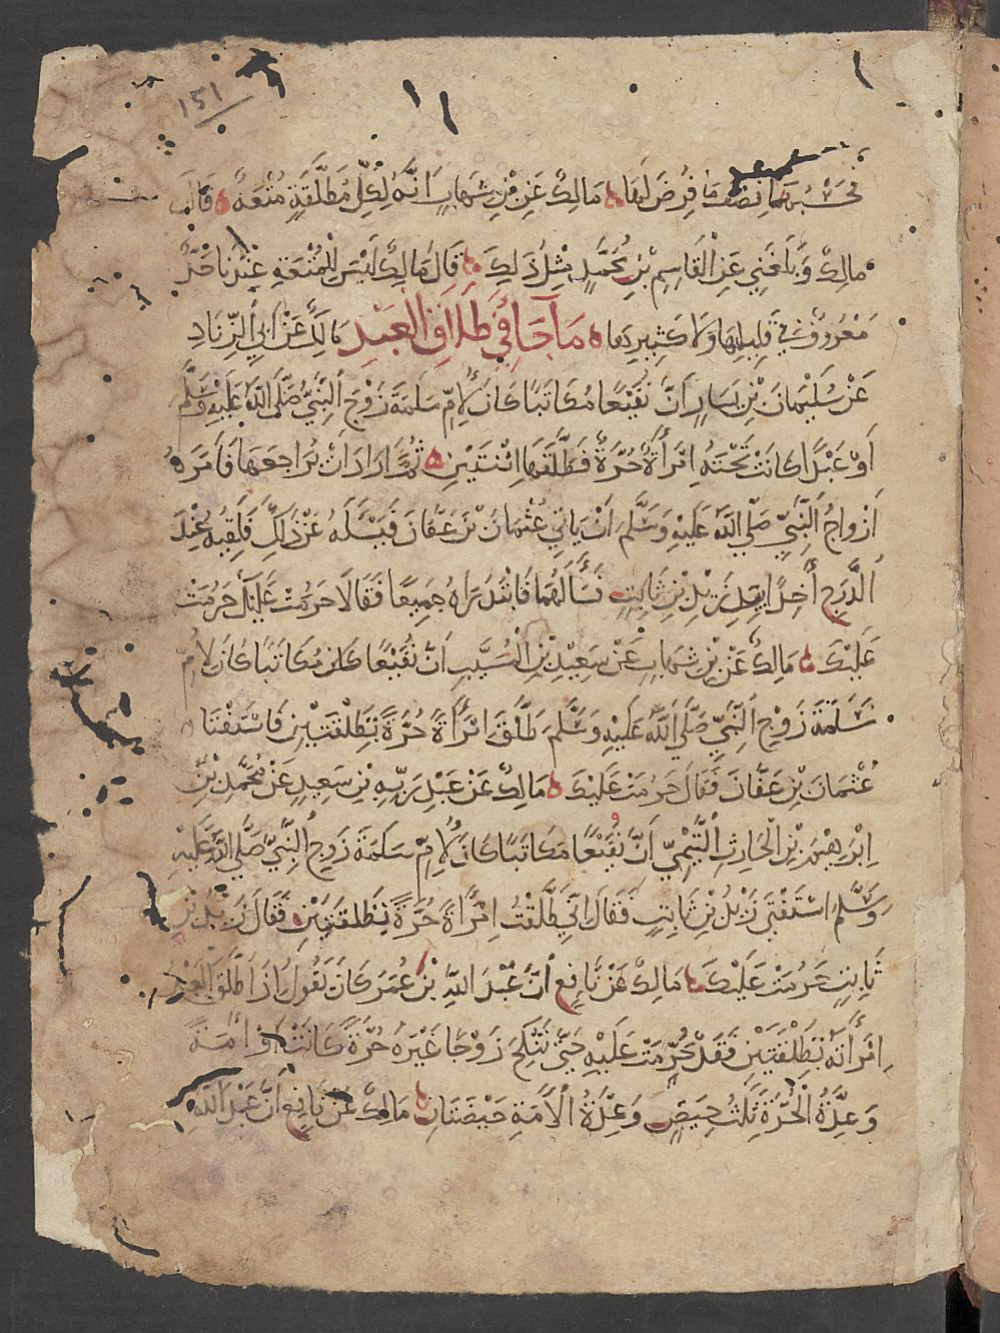 ١٥١
فحسبها نصف ما فرض لها ه مالك عن بن شهاب انه لكل مطلقة متعة ه قال
مالك وبلغني عن القاسم بن محمد مثل ذلك ه قال مالك ليس للمتعة عندنا حد
معروف في قليلها ولا كثيرها ه ما جآ في طلاق العبد مالك عن ابي الزناد
عن سليمان بن يسار ان نفيعا مكاتبا كان لام سلمة زوج النبي صلى الله عليه وسلم
او عبدا كانت تحته امرأة حرة فطلقها اثنتين ه ثم اراد ان يراجعها فامره
ازواج النبي صلى الله عليه وسلم ان ياتي عثمان بن عفان فيسله عن ذلك فلقيه عند
الدرج آخذا بيد زيد بن ثابت فسألهما فابتدراه جميعا فقالا حرمت عليك حرمت
عليك ه مالك عن بن شهاب عن سعيد بن المسيب ان نفيعا كان مكاتبا كان لام
سلمة زوج النبي صلى الله عليه وسلم طلق امرأة حرة بتطلقتين فاستفتا
عثمان بن عفان فقال حرمت عليك ه مالك عن عبد ربه بن سعيد عن محمد بن
ابرهيم بن الحارث التيمي ان نفيعا مكاتبا كان لام سلمة زوج النبي صلى الله عليه
وسلم استفتى زيد بن ثابت فقال اني طلقت امرأة حرة بتطلقتين ه فقال زيد بن
ثابت حرمت عليك ه مالك عن نافع ان عبد الله بن عمر كان يقول اذا طلق العبد
امرأته بتطلقتين فقد حرمت عليه حتى تنكح زوجا غيره حرة كانت او امة
وعدة الحرة ثلث حيض وعدة الامة حيضتان ه مالك عن نافع ان عبد الله